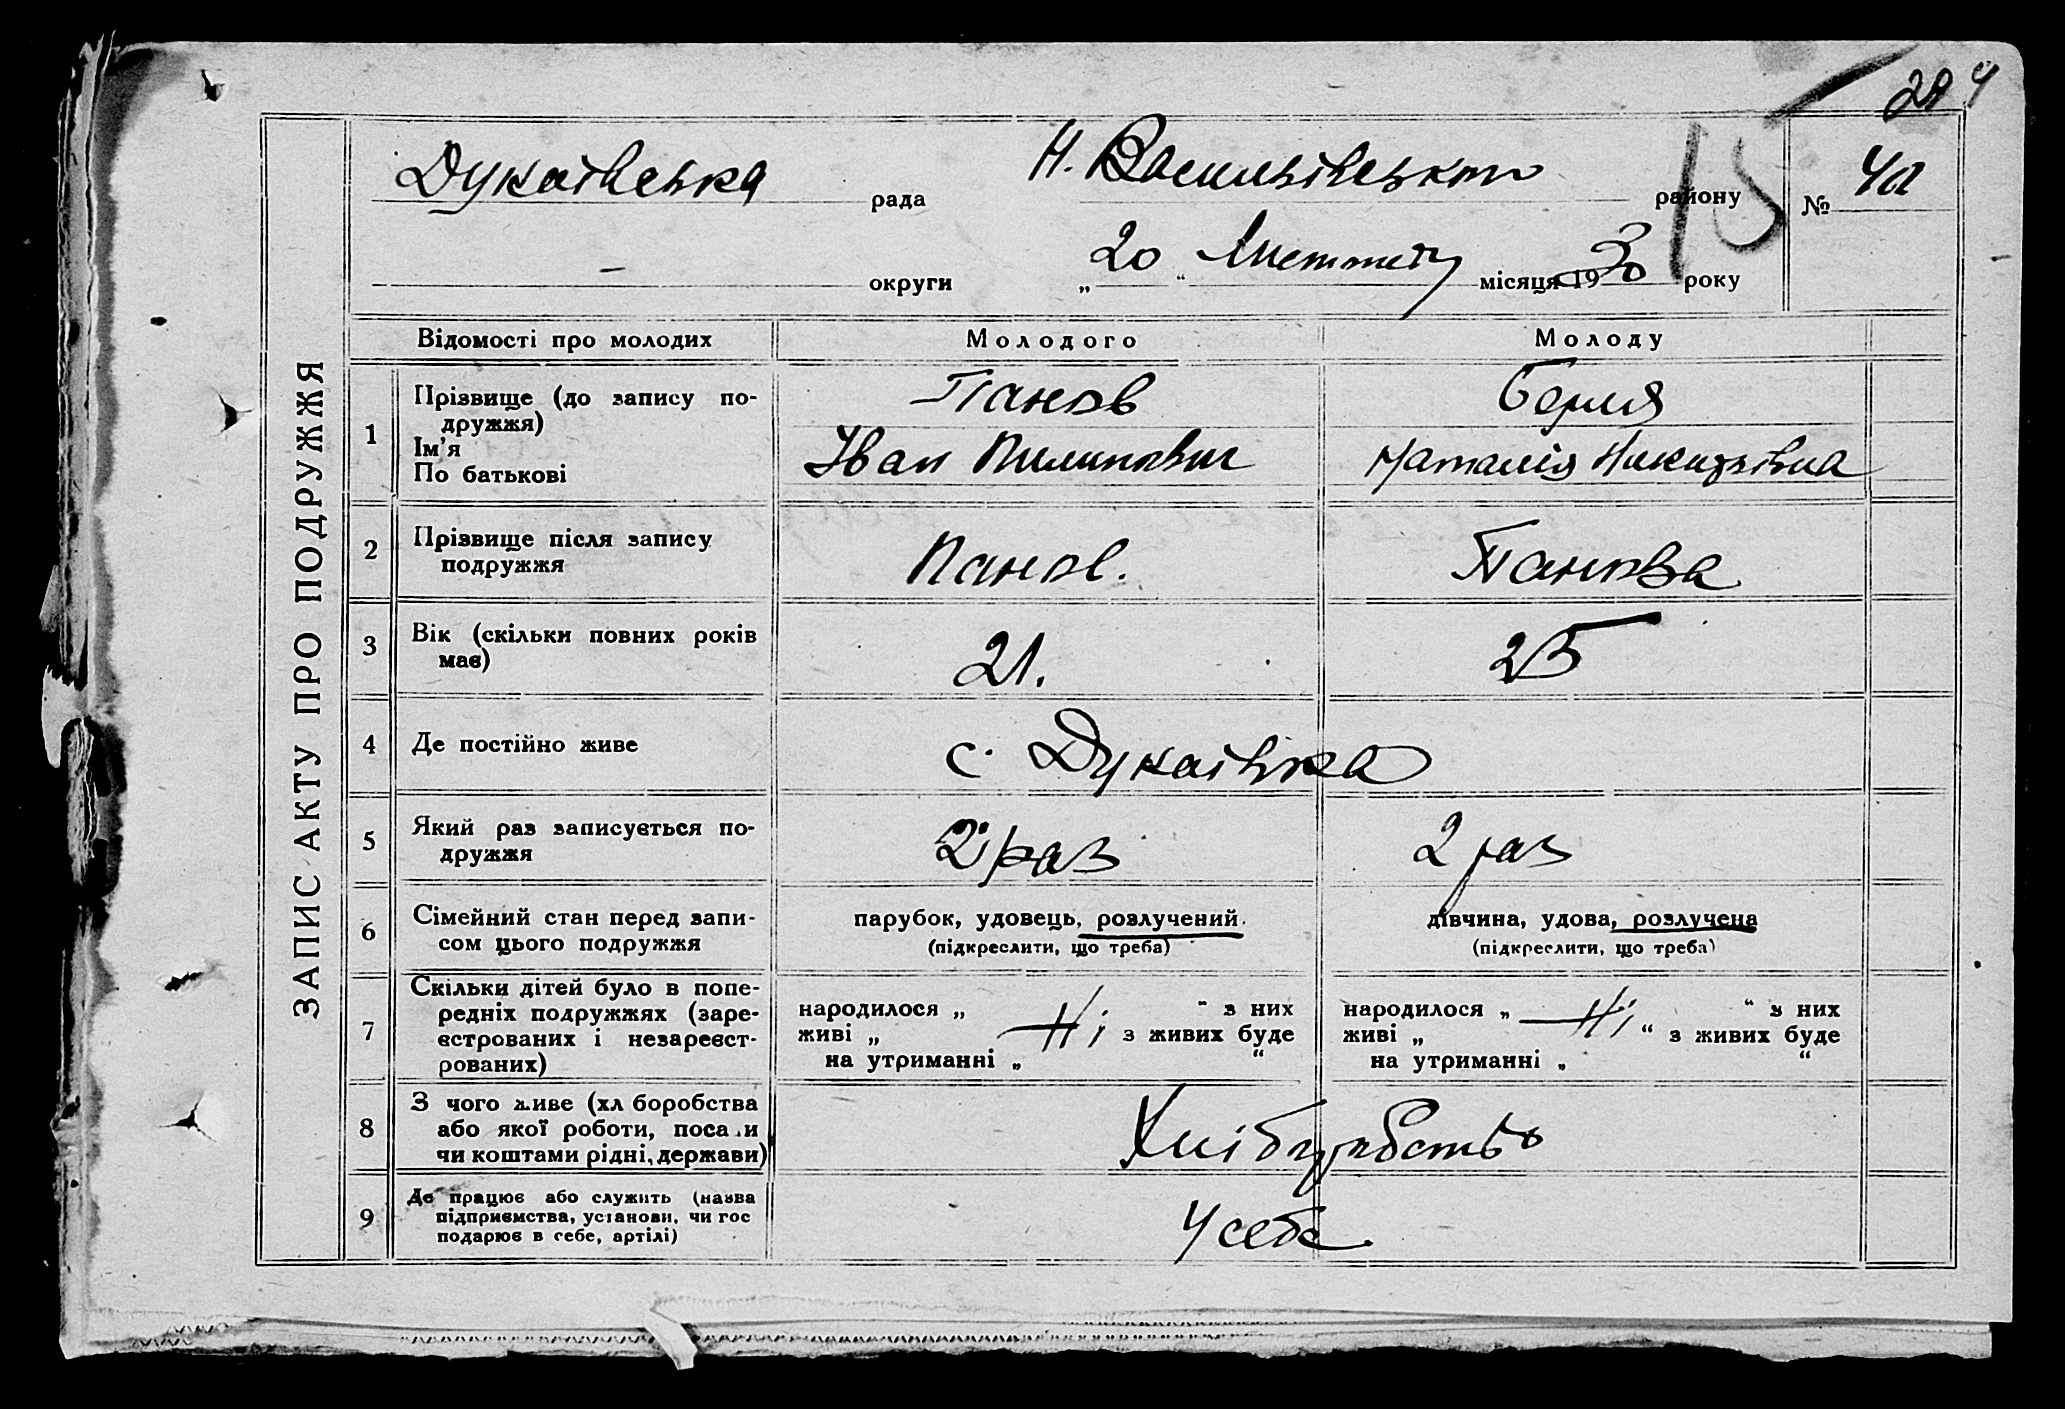 294
15
Дукаївська рада Н. Васильівського району № 40
– округи „20“ Листопаду місяця 1930 року
ЗАПИС АКТУ ПРО ПОДРУЖЖЯ
Відомості про молодих Молодого Молоду
1 Прізвище (до запису по-
дружжя)
Ім'я
По батькові
Панов
Іван Пилипович
Наталія Никитівна
2 Прізвище після запису
подружжя
Панов. Панова
3 Вік (скільки повних років
має)
21. 25
4 Де постійно живе с. Дукаївка
5 Який раз записується по-
дружжя
2 раз 2 раз
6 Сімейний стан перед запи-
сом цього подружжя
парубок, удовець, розлучений.
(підкреслити, що треба)
дівчина, удова, розлучена
(підкреслити, що треба)
7 Скільки дітей було в попе-
редніх подружжях (заре-
єстрованих і незареєст-
рованих)
народилося „ “ з них
живі „ Ні з живих буде
на утриманні „ “
народилося „ “ з них
живі „ Ні “ з живих буде
на утриманні „ “
8 З чого живе (хл боробства
або якої роботи, поса и
чи коштами рідні, держави)
Хліборобство
9 Де працює або служить (назва
підприємства, установи, чи гос
подарює в себе, артілі)
У себе